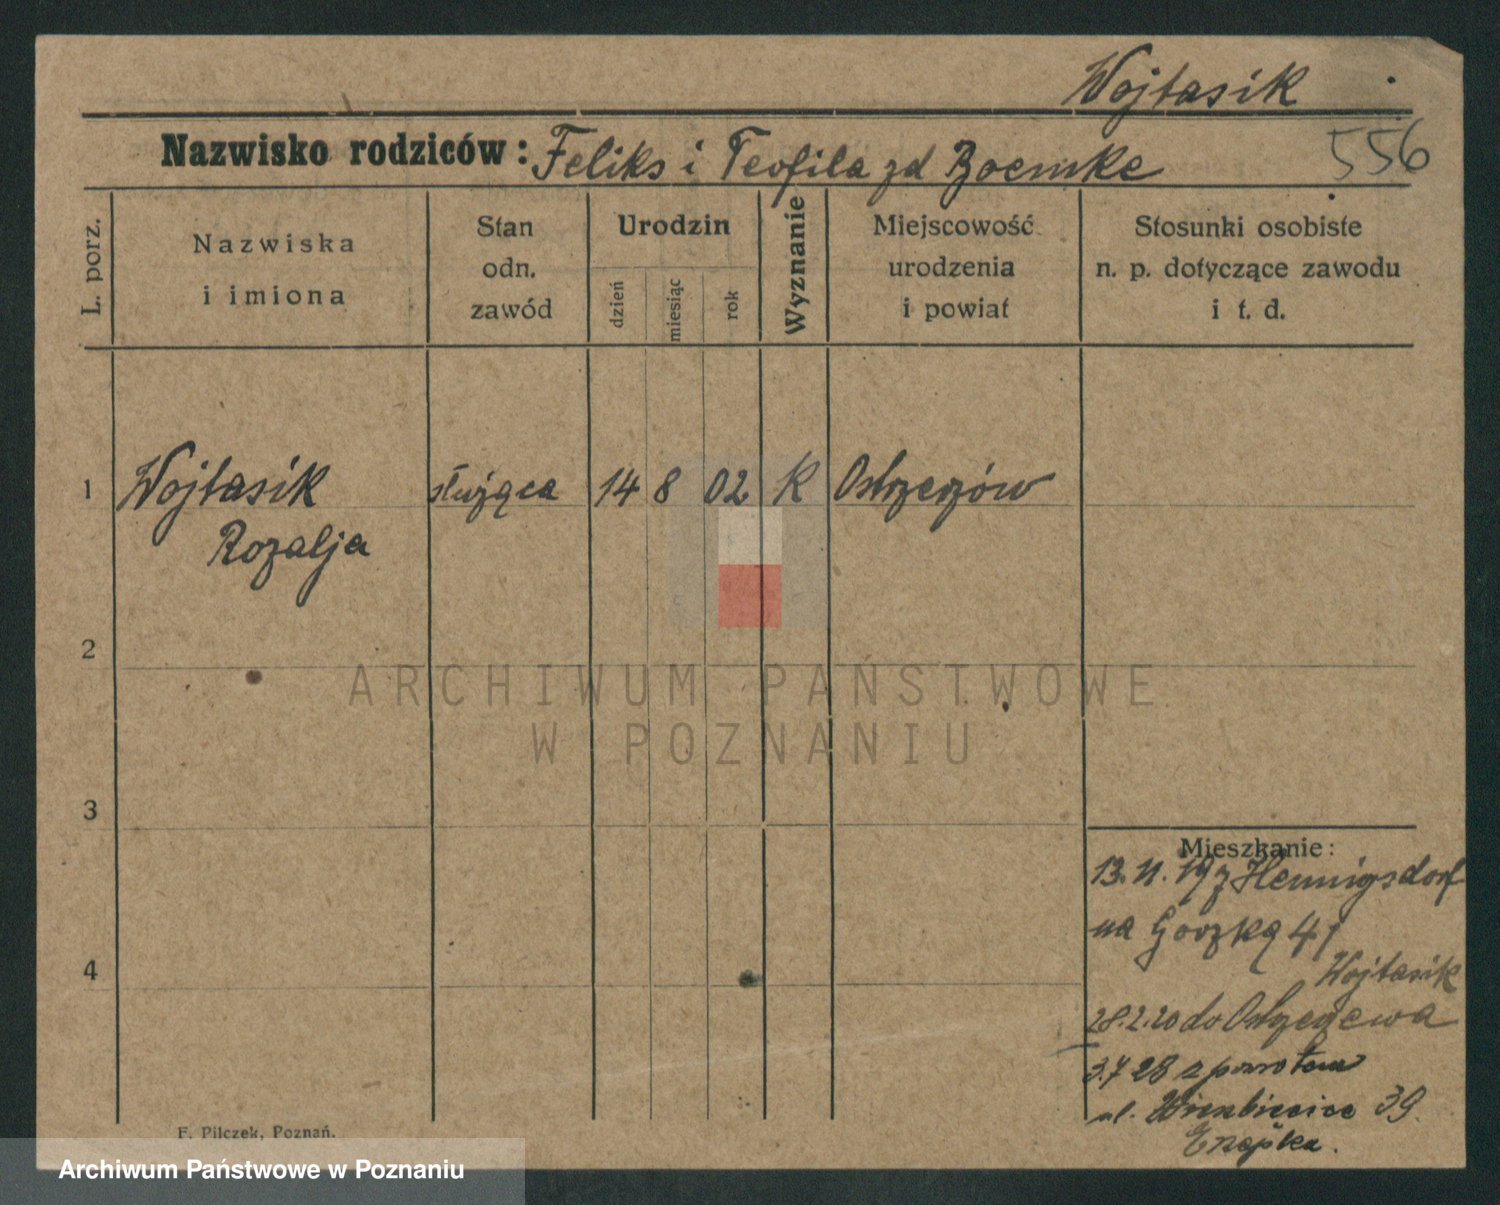 Wojtasik
556
Nazwisko rodziców: Feliks i Teofila zd Boemke
L. porz.
Nazwiska i imiona
Stan odn. zawód
Urodzin
dzień
miesiąc
rok
Wyznanie
Miejscowość urodzenia i powiat
Stosunki osobiste n. p. dotyczące zawodu i t. d.
1 Wojtasik służąca 14 8 02 K Ostrzeszów
Rozalja
2
ARCHIWUM PAŃSTWOWE
W POZNANIU
3
Mieszkanie:
13. 11. 19 z Hennigsdorf
na Górzką 41
4
Wojtasik
28.2.20 do
3.7 28 z powrotem
ul. Wierzbięcice 39.
F. Pilczek, Poznań.
Archiwum Państwowe w Poznaniu